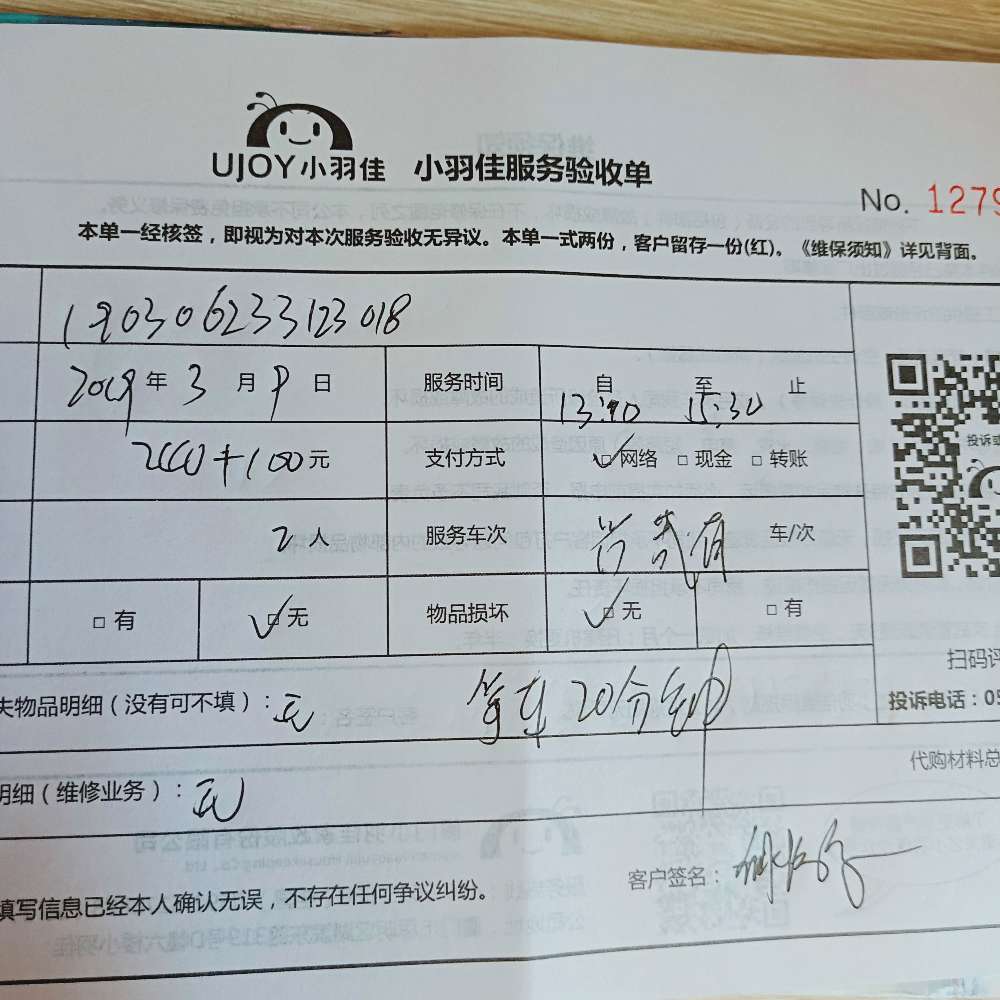 UJOY小羽佳 小羽佳服务验收单
No. 1279
本单一经核签，即视为对本次服务验收无异议。本单一式两份，客户留存一份(红)。《维保须知》详见背面。
190306233123018
2019 年 3 月 9 日 服务时间 自 至 止
15:30
+100元 支付方式 ☑网络 □现金 □转账
投诉或
2人 服务车次 车/次
□有 ☑无 物品损坏 ☑无 □有
扫码评
失物品明细（没有可不填）：无 等车20分钟
投诉电话：05
代购材料总
明细（维修业务）：无
填写信息已经本人确认无误，不存在任何争议纠纷。 客户签名：